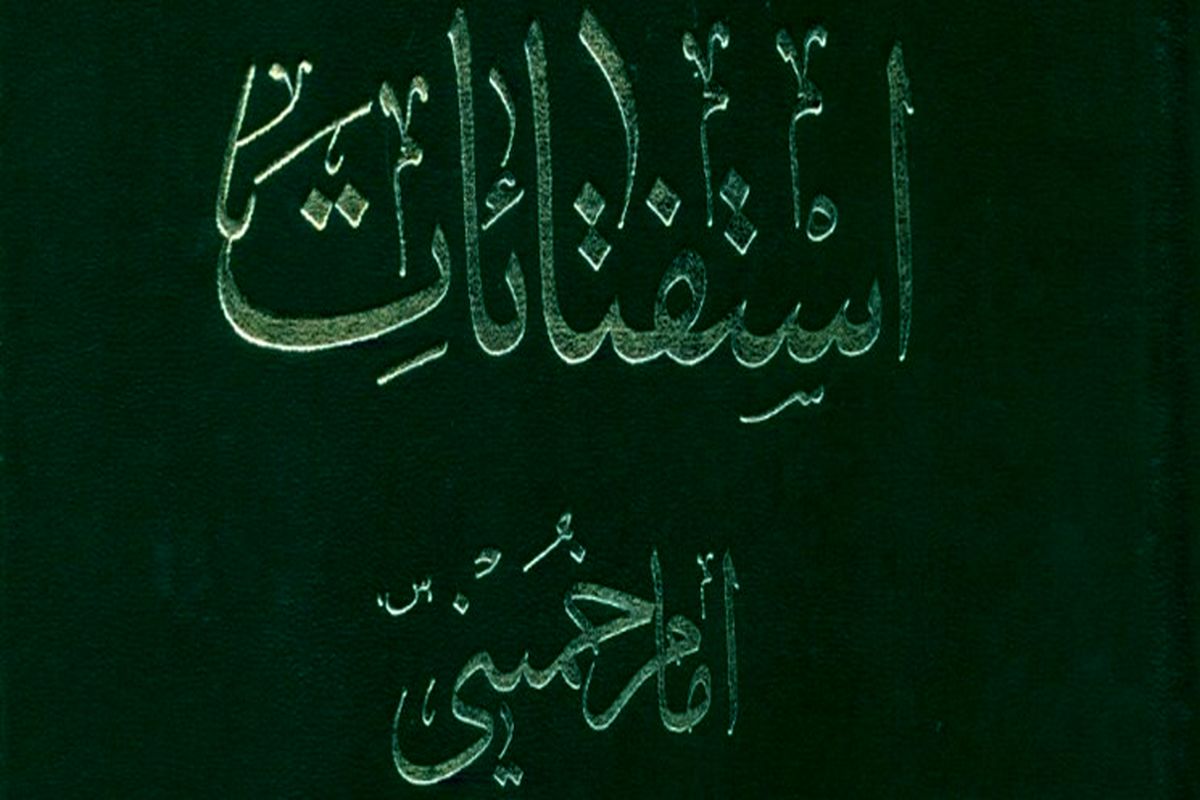 استفتائات
امام خمینی س